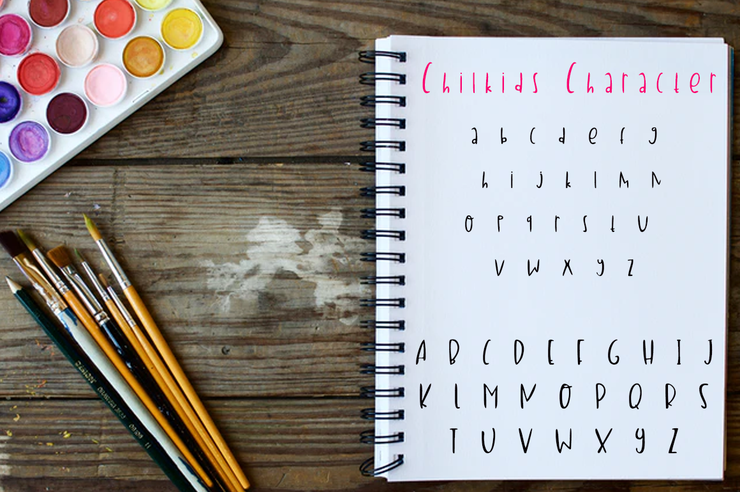 Chilkids Character
a b c d e f g
h i j k l m n
o p q r s t u
v w x y z
A B C D E F G H I J
K L M N O P Q R S
T U V W X Y Z